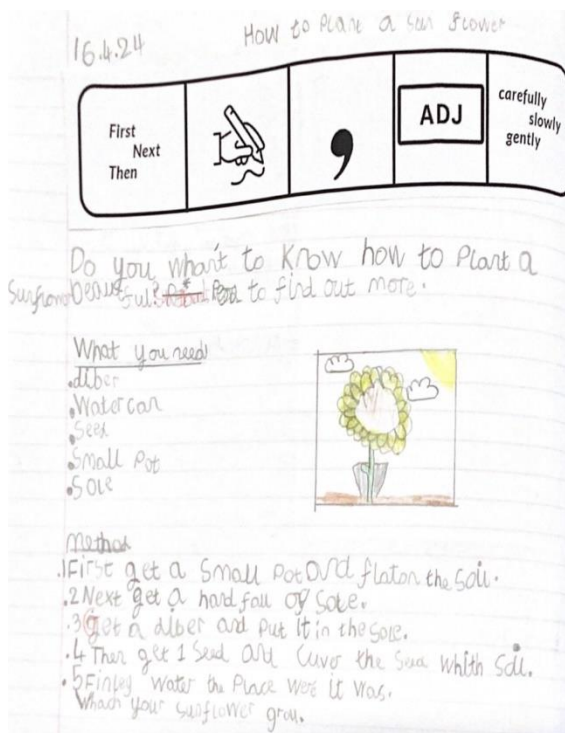 16.4.24
How to Plant a Sun flower
First
Next
Then
,
ADJ
carefully
slowly
gently
Do you whan't to know how to Plant a
Sunflower beautiful? to find out more.
What you need
.diber
.Watercan
.Seed
.Small Pot
.Sole
method
.1 First get a Small Pot and flaton the Soil.
.2 Next get a hard fall of Sole.
.3 get a diber and Put it in the Sole.
.4 Then get 1 Seed and Cuver the Seed whith Soil.
.5 Finley water the Place were it was.
Whach your sunflower grow.